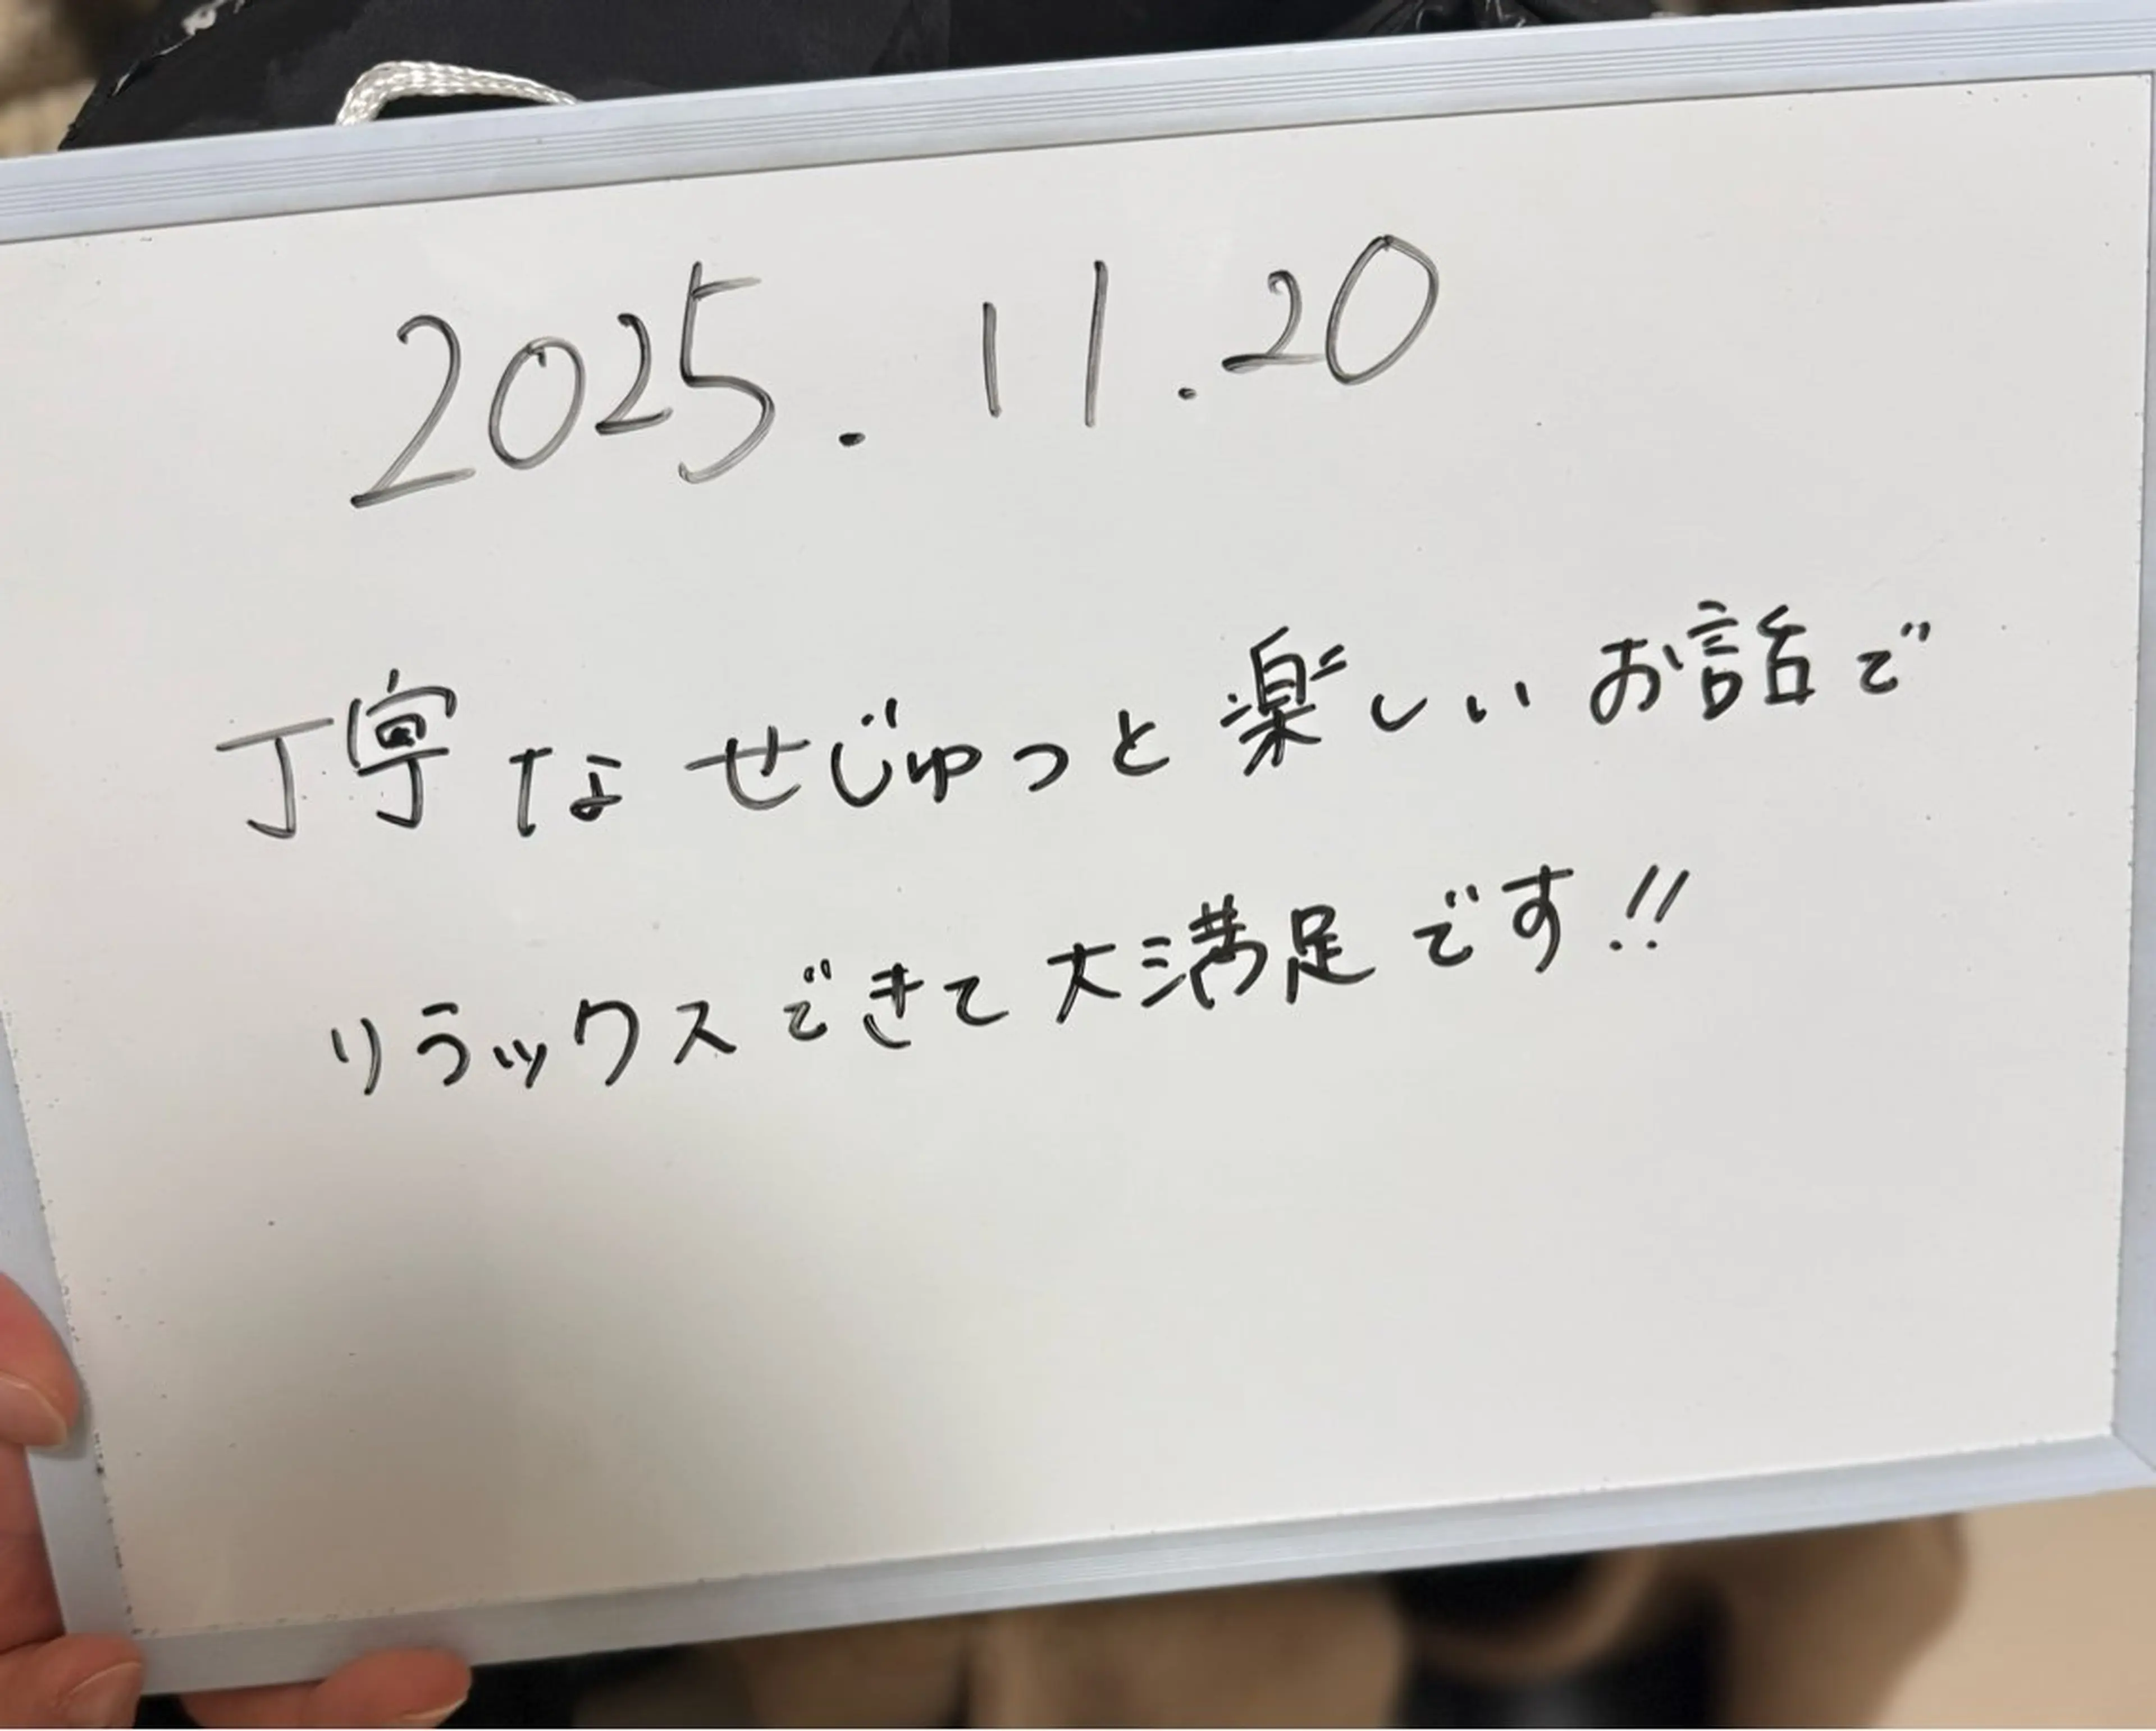 2025.11.20
丁寧なせじゅつと楽しいお話で
リラックスできて大満足です!!